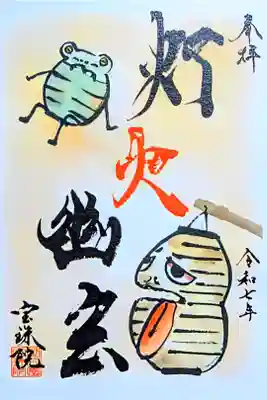 奉拝
令和七年
灯火幽玄
宝珠院